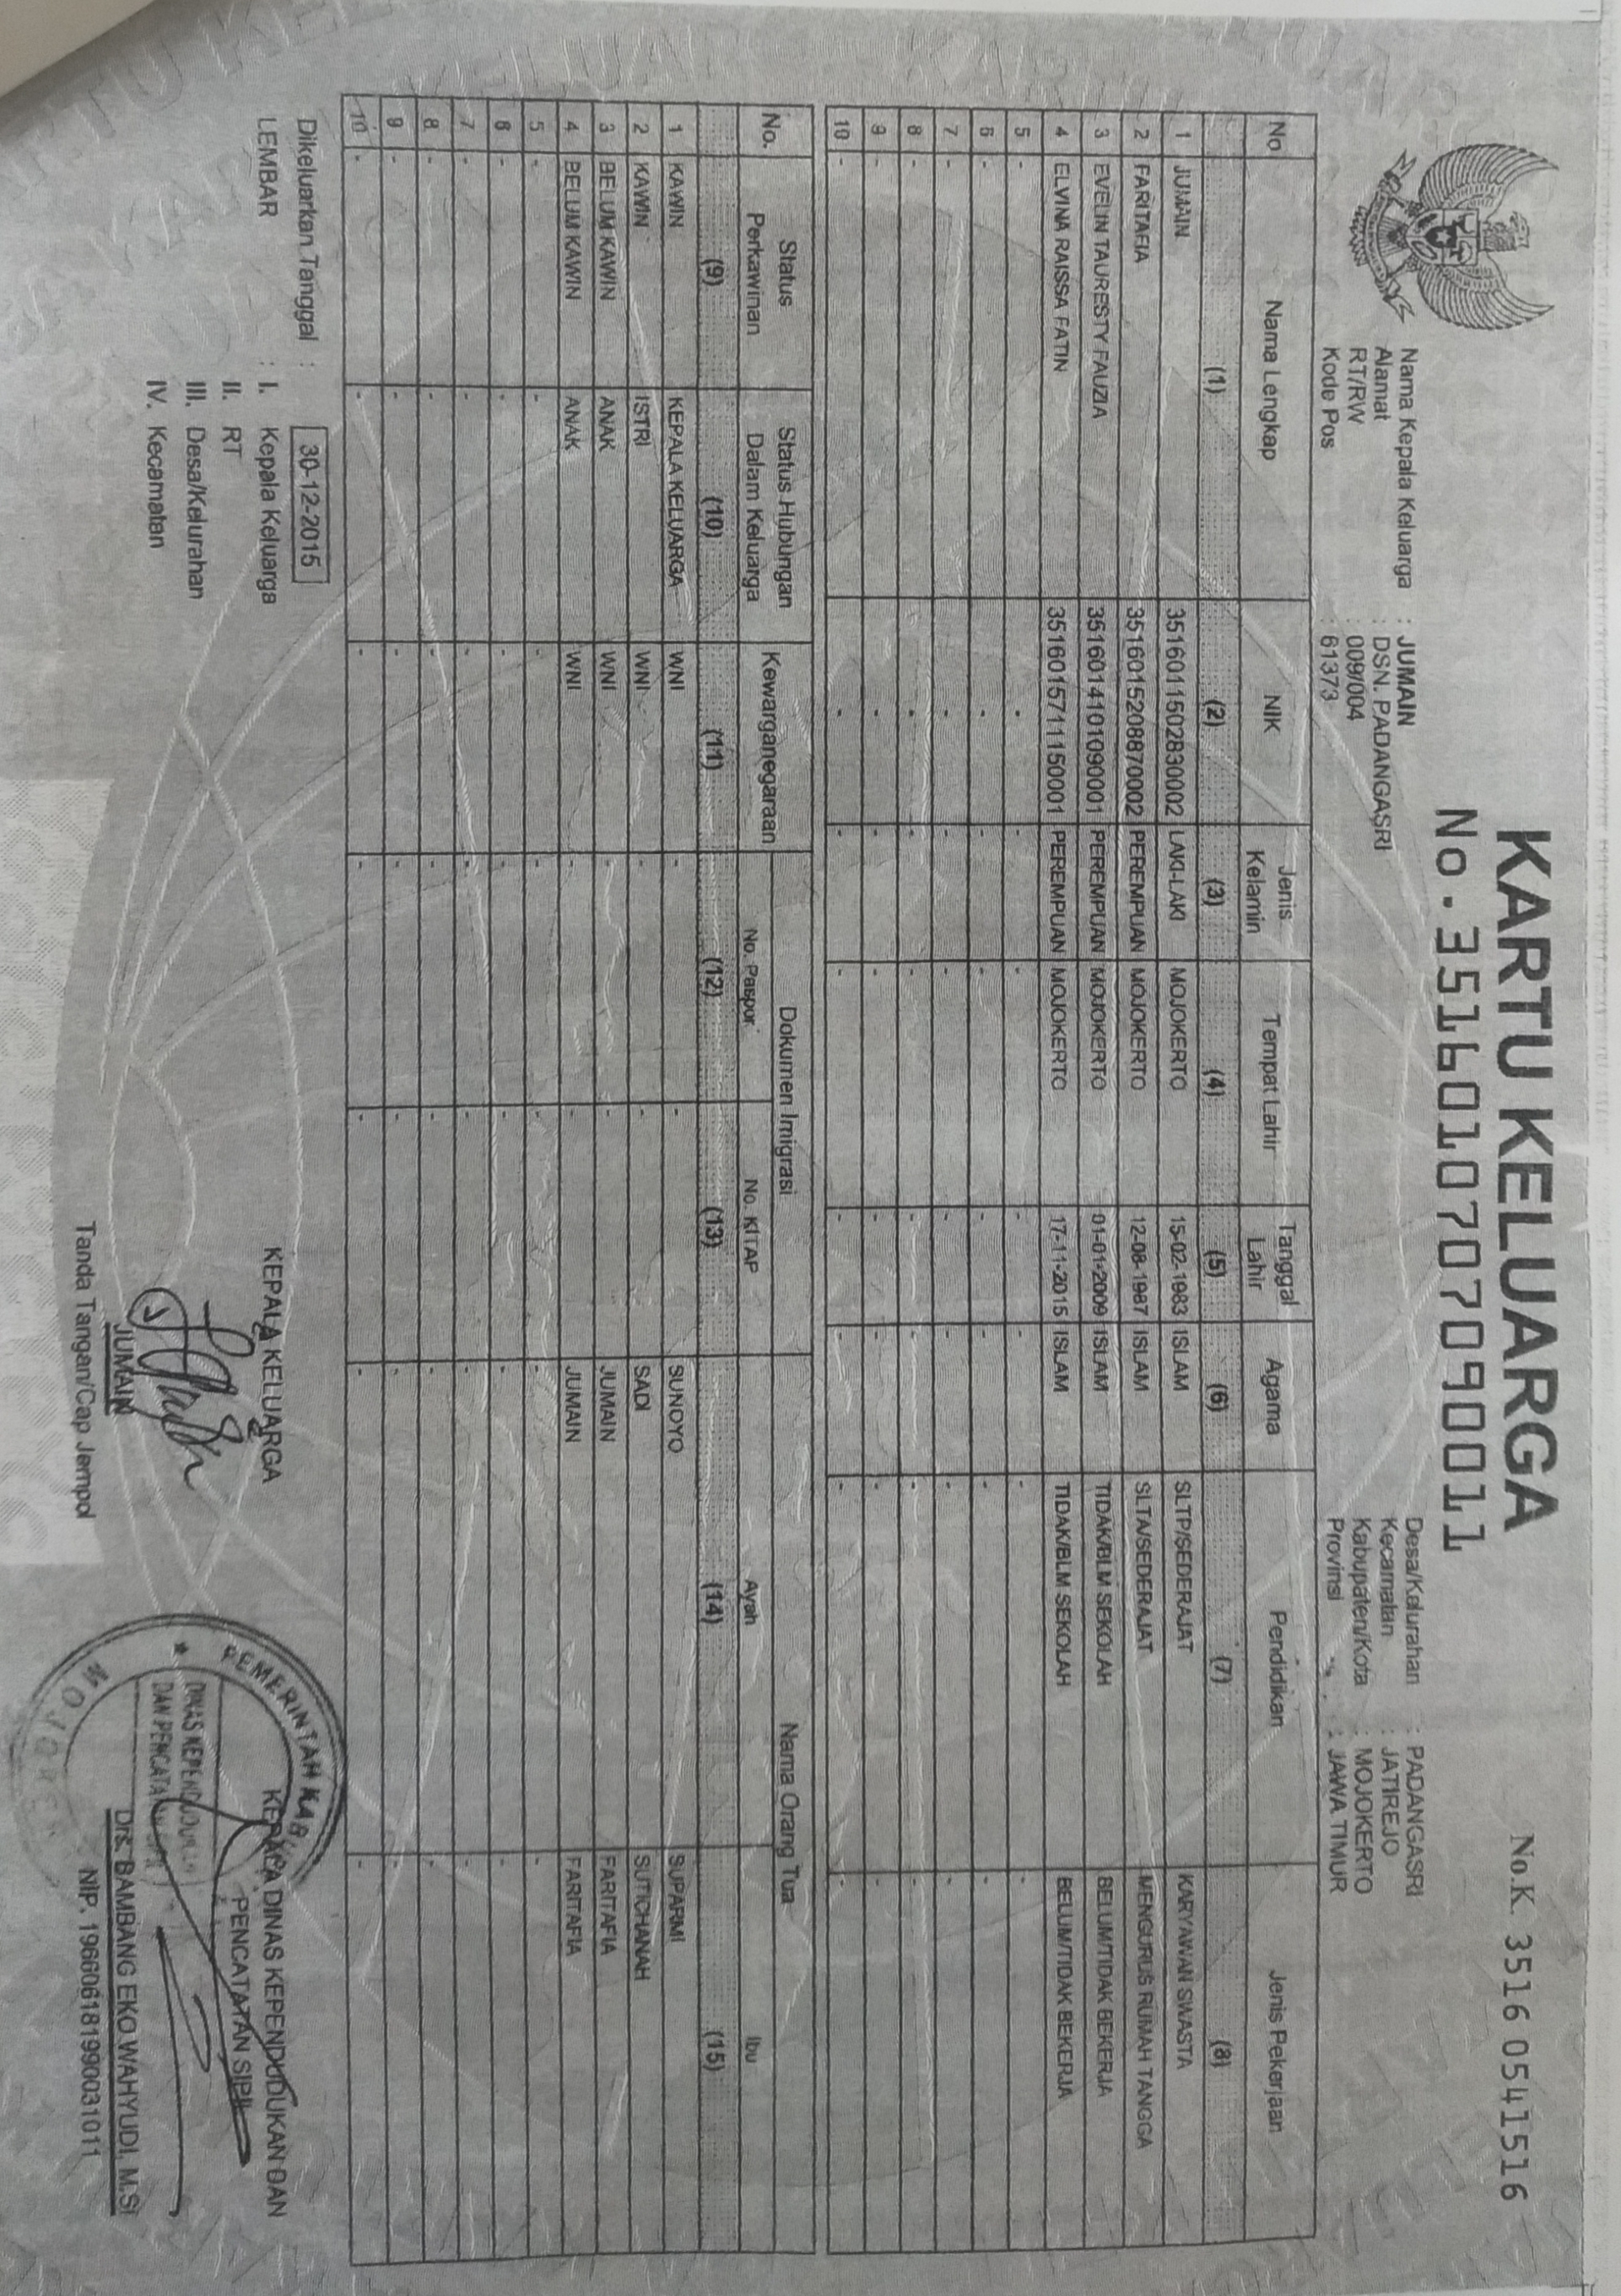 KARTU KELUARGA
No. 3516010707090011
No.K. 3516 0541516
Nama Kepala Keluarga : JUMAIN
Alamat : DSN. PADANGASRI
RT/RW : 009/004
Kode Pos : 61373
Desa/Kelurahan : PADANGASRI
Kecamatan : JATIREJO
Kabupaten/Kota : MOJOKERTO
Provinsi : JAWA TIMUR
No Nama Lengkap NIK Jenis Kelamin Tempat Lahir Tanggal Lahir Agama Pendidikan Jenis Pekerjaan
(1) (2) (3) (4) (5) (6) (7) (8)
1 JUMAIN 3516011502830002 LAKI-LAKI MOJOKERTO 15-02-1983 ISLAM SLTP/SEDERAJAT KARYAWAN SWASTA
2 FARITAFIA 3516015208870002 PEREMPUAN MOJOKERTO 12-08-1987 ISLAM SLTA/SEDERAJAT MENGURUS RUMAH TANGGA
3 EVELIN TAURESTY FAUZIA 3516014101090001 PEREMPUAN MOJOKERTO 01-01-2009 ISLAM TIDAK/BLM SEKOLAH BELUM/TIDAK BEKERJA
4 ELVINA RAISSA FATIN 3516015711150001 PEREMPUAN MOJOKERTO 17-11-2015 ISLAM TIDAK/BLM SEKOLAH BELUM/TIDAK BEKERJA
5 - - - - - - - -
6 - - - - - - - -
7 - - - - - - - -
8 - - - - - - - -
9 - - - - - - - -
10 - - - - - - - -
No. Status Perkawinan Status Hubungan Dalam Keluarga Kewarganegaraan Dokumen Imigrasi Nama Orang Tua
No. Paspor No. KITAP Ayah Ibu
(9) (10) (11) (12) (13) (14) (15)
1 KAWIN KEPALA KELUARGA WNI - - SUNOYO SUPARMI
2 KAWIN ISTRI WNI - - SADI SUTICHANAH
3 BELUM KAWIN ANAK WNI - - JUMAIN FARITAFIA
4 BELUM KAWIN ANAK WNI - - JUMAIN FARITAFIA
5 - - - - - - -
6 - - - - - - -
7 - - - - - - -
8 - - - - - - -
9 - - - - - - -
10 - - - - - - -
Dikeluarkan Tanggal : 30-12-2015
LEMBAR : I. Kepala Keluarga
II. RT
III. Desa/Kelurahan
IV. Kecamatan
KEPALA KELUARGA
JUMAIN
Tanda Tangan/Cap Jempol
KEPALA DINAS KEPENDUDUKAN DAN
PENCATATAN SIPIL
Drs. BAMBANG EKO WAHYUDI, M.Si
NIP. 196606181990031011
PEMERINTAH KAB.
DINAS KEPENDUDUKAN
DAN PENCATATAN